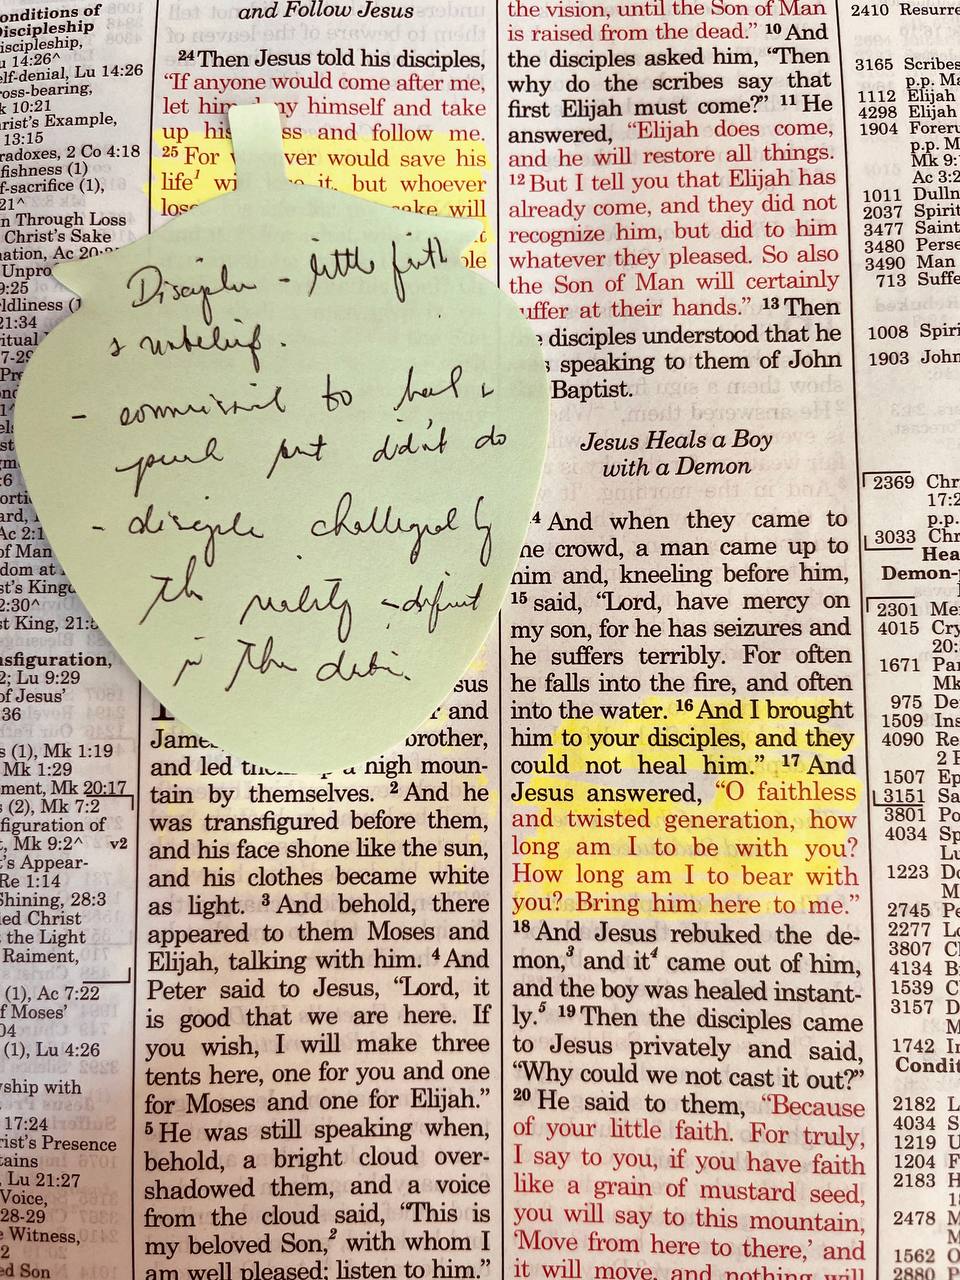 onditions of
Discipleship
iscipleship,
u 14:26^
elf-denial, Lu 14:26
oss-bearing,
k 10:21
rist's Example,
13:15
radoxes, 2 Co 4:18
fishness (1)
f-sacrifice (1),
21^
n Through Loss
Christ's Sake
nation, Ac 20:2
Unpro
9:25
rldliness (1
21:34
ritual
7-29
and Follow Jesus
24 Then Jesus told his disciples,
“If anyone would come after me,
let him deny himself and take
up his ss and follow me.
25 For ver would save his
life¹ wi it, but whoever
lose sake will
ple
Disciples - little faith
& unbelief.
- commission to heal &
but didn't do
- disciple challenged by
the reality
in the
sus
and
James brother,
and led a high moun-
tain by themselves. 2 And he
was transfigured before them,
and his face shone like the sun,
and his clothes became white
as light. 3 And behold, there
appeared to them Moses and
Elijah, talking with him. 4 And
Peter said to Jesus, “Lord, it
is good that we are here. If
you wish, I will make three
tents here, one for you and one
for Moses and one for Elijah.”
5 He was still speaking when,
behold, a bright cloud over-
shadowed them, and a voice
from the cloud said, “This is
my beloved Son,² with whom I
am well pleased; listen to him.”
Ac 2:1
of Man
dom at
st's Kingd
2:30^
st King, 21:5
nsfiguration,
2; Lu 9:29
of Jesus'
36
s (1), Mk 1:19
Mk 1:29
ment, Mk 20:17
s (2), Mk 7:2
figuration of
, Mk 9:2^ v2
t's Appear-
Re 1:14
Shining, 28:3
ied Christ
s the Light
Raiment,
(1), Ac 7:22
f Moses'
04
(1), Lu 4:26
vship with
17:24
rist's Presence
tains
, Lu 21:27
Voice,
28-29
e Witness,
2
ed Son
the vision, until the Son of Man
is raised from the dead.” 10 And
the disciples asked him, “Then
why do the scribes say that
first Elijah must come?” 11 He
answered, “Elijah does come,
and he will restore all things.
12 But I tell you that Elijah has
already come, and they did not
recognize him, but did to him
whatever they pleased. So also
the Son of Man will certainly
uffer at their hands.” 13 Then
e disciples understood that he
s speaking to them of John
Baptist.
Jesus Heals a Boy
with a Demon
4 And when they came to
he crowd, a man came up to
him and, kneeling before him,
15 said, “Lord, have mercy on
my son, for he has seizures and
he suffers terribly. For often
he falls into the fire, and often
into the water. 16 And I brought
him to your disciples, and they
could not heal him.” 17 And
Jesus answered, “O faithless
and twisted generation, how
long am I to be with you?
How long am I to bear with
you? Bring him here to me.”
18 And Jesus rebuked the de-
mon,³ and it⁴ came out of him,
and the boy was healed instant-
ly.⁵ 19 Then the disciples came
to Jesus privately and said,
“Why could we not cast it out?”
20 He said to them, “Because
of your little faith. For truly,
I say to you, if you have faith
like a grain of mustard seed,
you will say to this mountain,
‘Move from here to there,’ and
it will move, and nothing will
2410 Resurre
3165 Scribes
p.p. Ma
1112 Elijah
4298 Elijah
1904 Foreru
p.p. M
Mk 9:1
Ac 3:2
1011 Dulln
2037 Spirit
3477 Saint
3480 Perse
3490 Man
713 Suffe
1008 Spiri
1903 John
2369 Chr
17:2
p.p.
3033 Chr
Hea
Demon-p
2301 Me
4015 Cry
20:
1671 Par
Mk
975 De
1509 Ins
4090 Re
2 F
1507 Ep
3151 Sa
3801 Po
4034 Sp
Lu
1223 Do
M
2745 Pe
2277 Lo
3807 Cl
4134 Br
1539 C
3157 D
M
1742 In
Condit
2182 L
4034 S
1219 U
1204 F
2183 H
18
2478 M
M
1562 O
2880 P